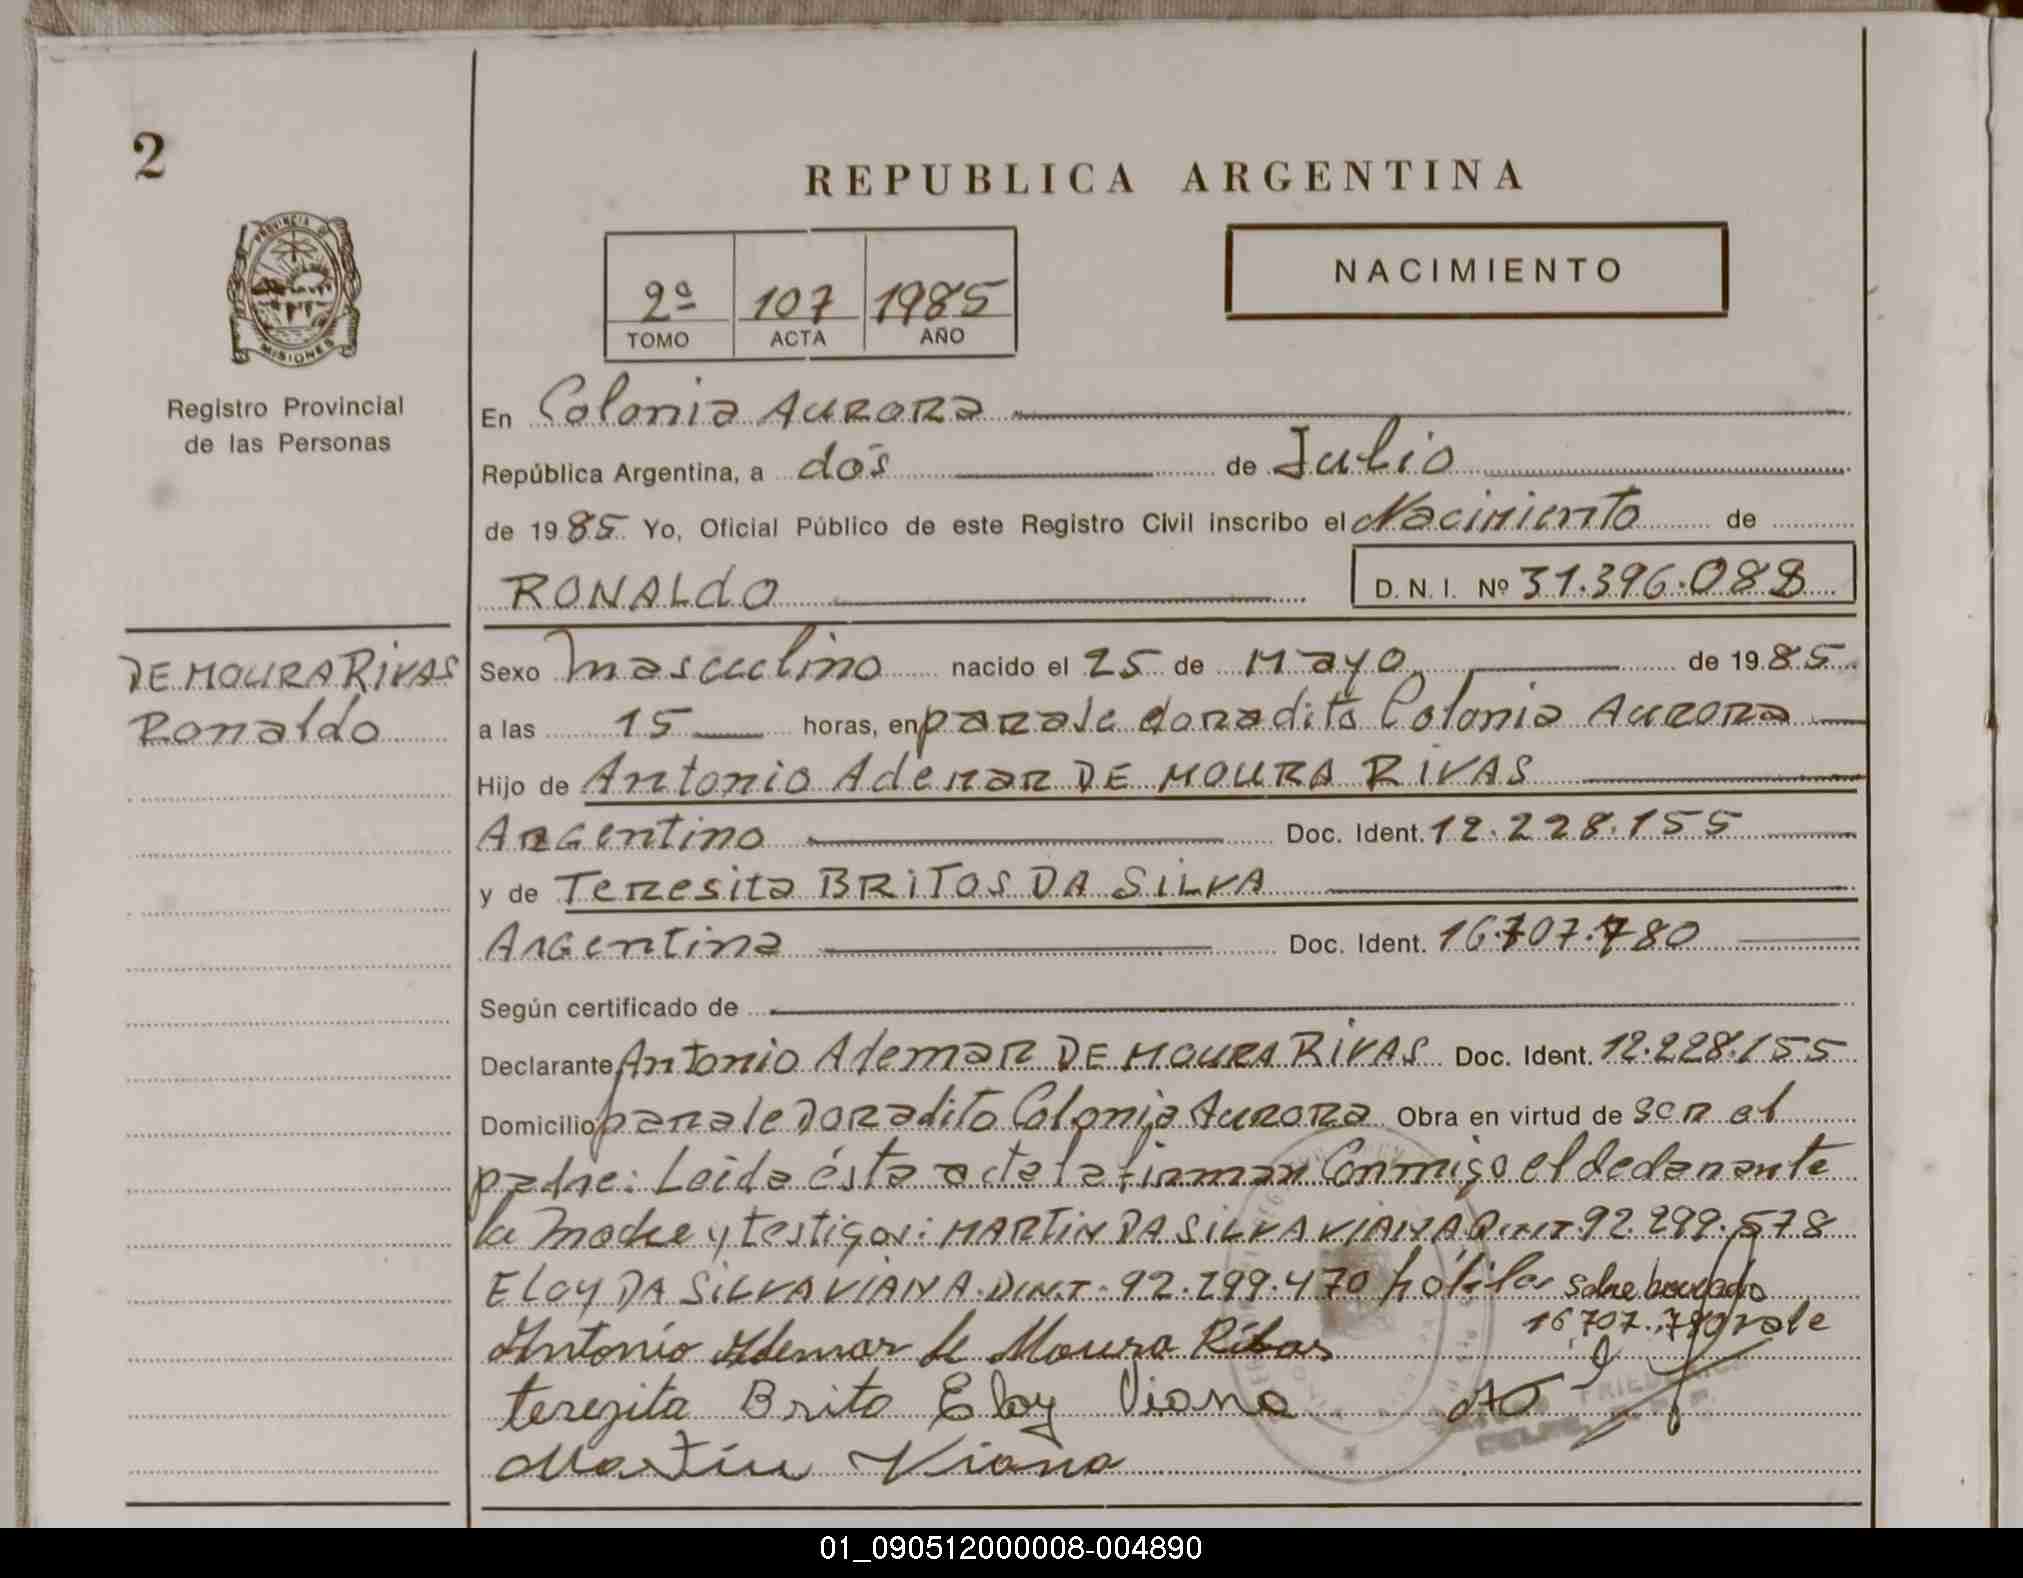 2
REPUBLICA ARGENTINA
PROVINCIA DE
MISIONES
2ª 107 1985
TOMO ACTA AÑO
NACIMIENTO
Registro Provincial
de las Personas
En Colonia Aurora
República Argentina, a dos de Julio
de 1985 Yo, Oficial Público de este Registro Civil inscribo el Nacimiento de
RONALdO D. N. I. Nº 31.396.088
DE MOURA RIVAS
Ronaldo
Sexo Masculino nacido el 25 de Mayo de 1985
a las 15 horas, en paraje doradito Colonia Aurora
Hijo de Antonio Ademar DE MOURA RIVAS
Argentino Doc. Ident. 12.228.155
y de Teresita BRITOS DA SILVA
Argentina Doc. Ident. 16.707.780
Según certificado de
Declarante Antonio Ademar DE MOURA RIVAS Doc. Ident. 12.228.155
Domicilio paraje Doradito Colonia Aurora Obra en virtud de ser el
padre: Leída ésta acta la firman Conmigo el declarante
la Madre y testigos: MARTIN DA SILVA VIANA D.N.T. 92.299.578
ELOY DA SILVA VIANA. D.N.T. 92.299.470 hábiles sobre borrado
16707.780 vale
Antonio Ademar de Moura Ribas
terezita Brito Eloy Viana
Martin Viana
01_090512000008-004890